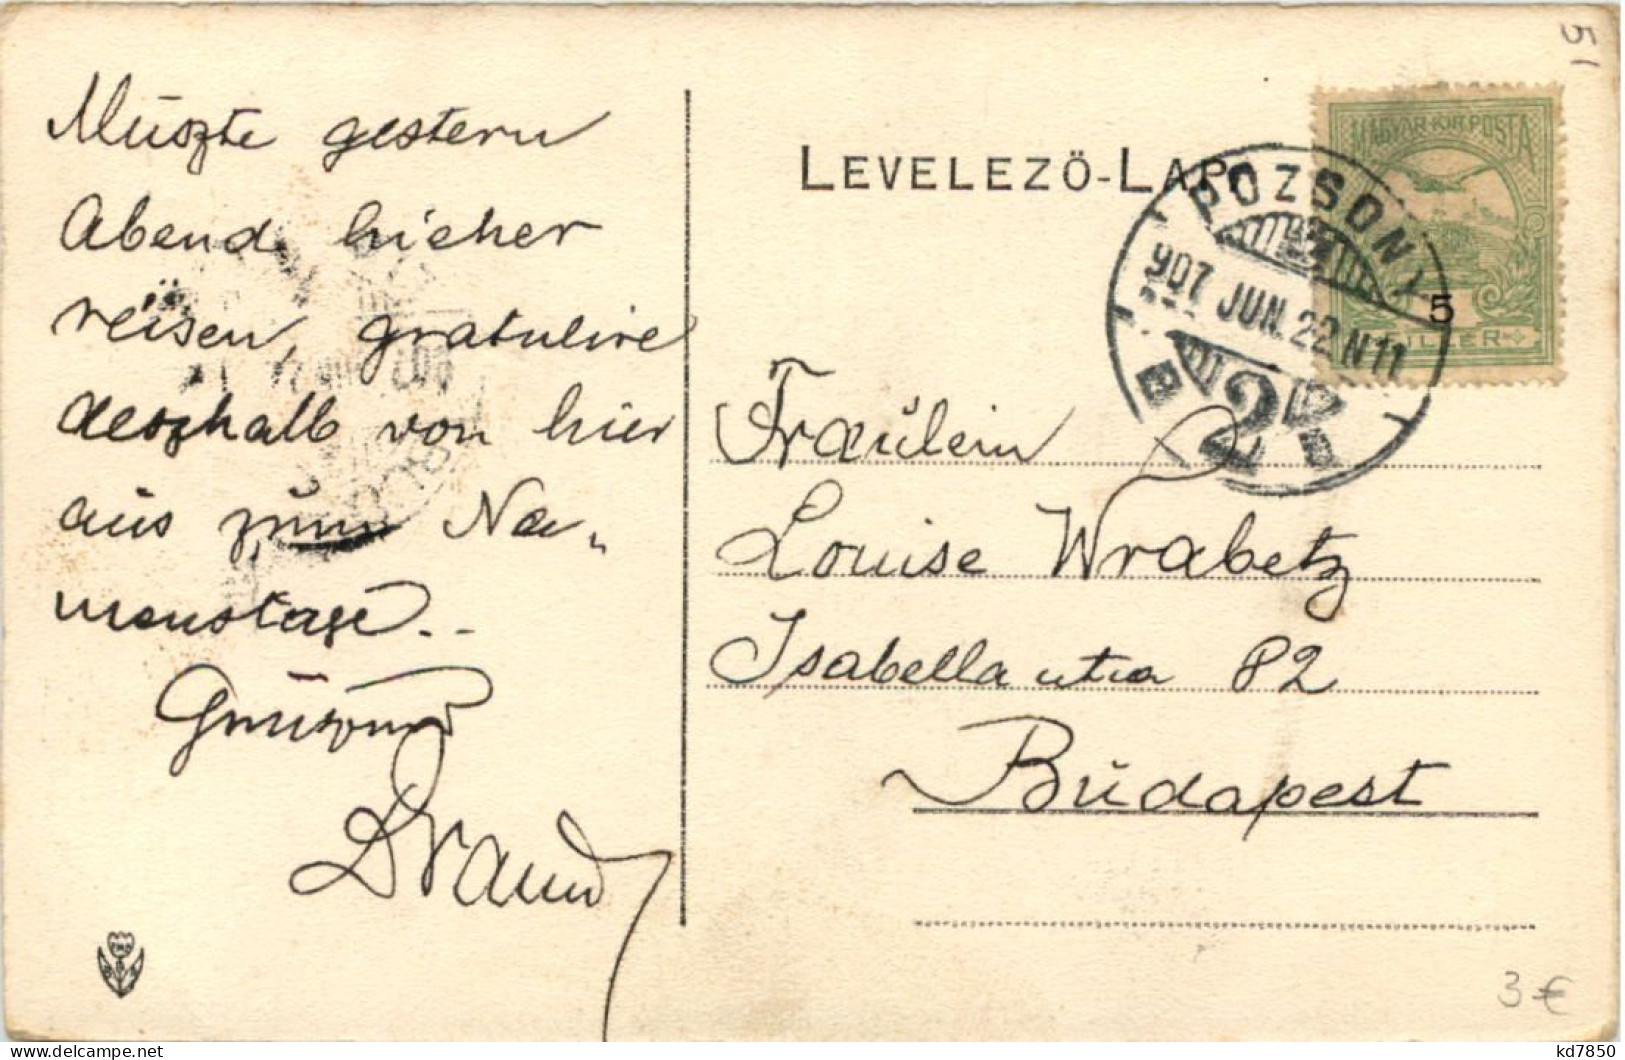 Müszte gestern
Abend hieher
reisen, gratulire
deszhalb von hier
aus zum Na-
menstage..
LEVELEZŐ-LAP.
MAGYAR·KIR·POSTA
5
FILLÉR
POZSONY
907 JUN. 22 N11
2
Fräulein
Louise Wrabetz
Isabella utca 82
Budapest
5
3 €
kd7850